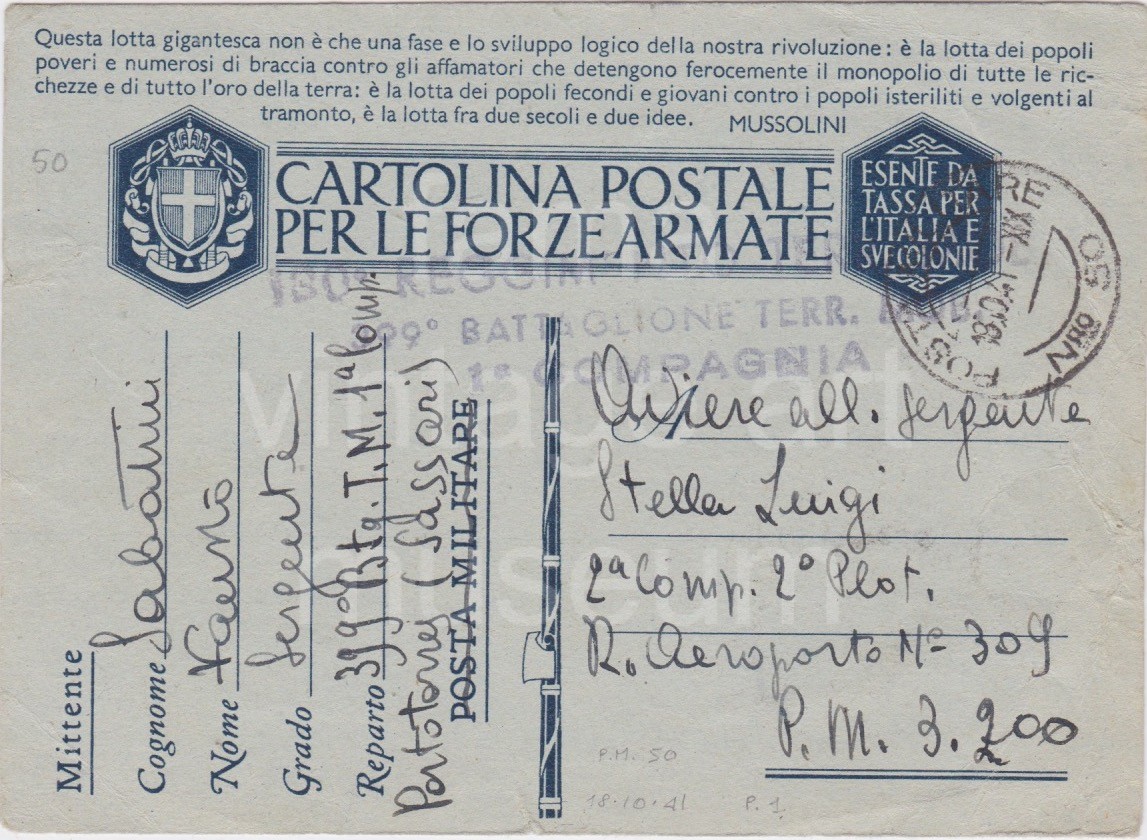 Questa lotta gigantesca non è che una fase e lo sviluppo logico della nostra rivoluzione: è la lotta dei popoli
poveri e numerosi di braccia contro gli affamatori che detengono ferocemente il monopolio di tutte le ric-
chezze e di tutto l'oro della terra: è la lotta dei popoli fecondi e giovani contro i popoli isteriliti e volgenti al
tramonto, è la lotta fra due secoli e due idee. MUSSOLINI
50
CARTOLINA POSTALE
PER LE FORZE ARMATE
ESENTE DA
TASSA PER
L'ITALIA E
SVE COLONIE
399° BATTAGLIONE TERR. MOB.
1ª COMPAGNIA
POSTA MILITARE
N° 50
18.10.41-XIX
Mittente
Cognome Sabatini
Nome Fausto
Grado Sergente
Reparto 399° Btg. T.M. 1ª Comp.
Portotorres (Sassari)
POSTA MILITARE
all. Sergente
Stella Luigi
2ª Comp. 2° Plot.
R. Aeroporto N° 309
P. M. 3. 200
P.M. 50
18·10·41 P. 1
vintage art
museum